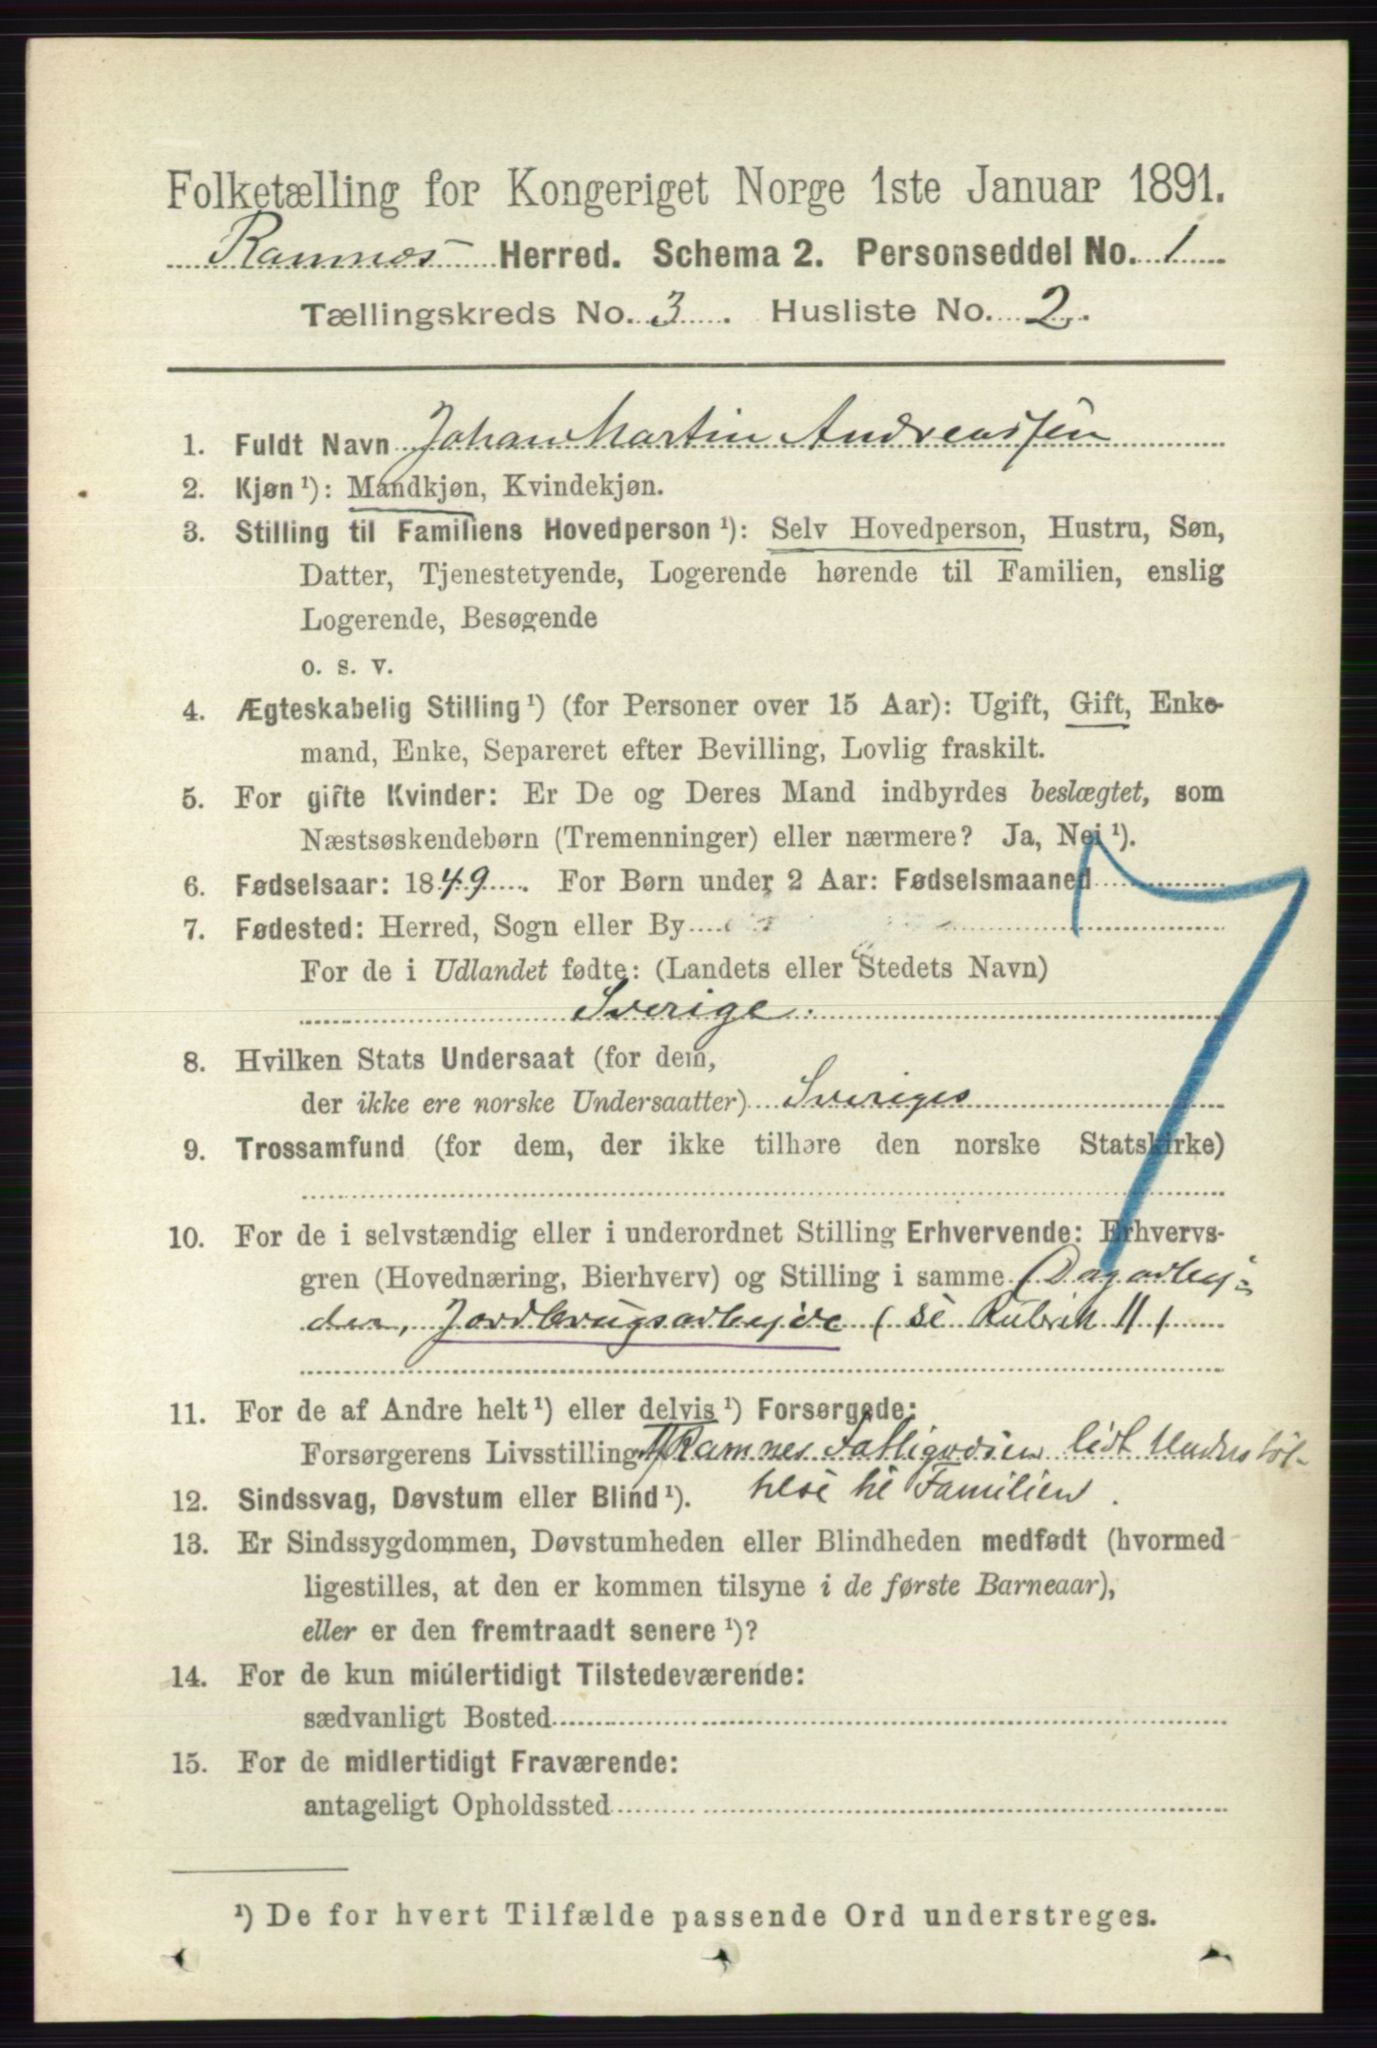 Folketælling for Kongeriget Norge 1ste Januar 1891.
Ramnes Herred. Schema 2. Personseddel No. 1
Tællingskreds No. 3. Husliste No. 2.
1. Fuldt Navn Johan Martin Andreassen
2. Kjøn ¹): Mandkjøn, Kvindekjøn.
3. Stilling til Familiens Hovedperson ¹): Selv Hovedperson, Hustru, Søn,
Datter, Tjenestetyende, Logerende hørende til Familien, enslig
Logerende, Besøgende
o. s. v.
4. Ægteskabelig Stilling ¹) (for Personer over 15 Aar): Ugift, Gift, Enke-
mand, Enke, Separeret efter Bevilling, Lovlig fraskilt.
5. For gifte Kvinder: Er De og Deres Mand indbyrdes beslægtet, som
Næstsøskendebørn (Tremenninger) eller nærmere? Ja, Nei ¹).
6. Fødselsaar: 1849. For Børn under 2 Aar: Fødselsmaaned
7. Fødested: Herred, Sogn eller By
For de i Udlandet fødte: (Landets eller Stedets Navn)
Sverige.
8. Hvilken Stats Undersaat (for dem,
der ikke ere norske Undersaatter) Sveriges
9. Trossamfund (for dem, der ikke tilhøre den norske Statskirke)
10. For de i selvstændig eller i underordnet Stilling Erhvervende: Erhvervs-
gren (Hovednæring, Bierhverv) og Stilling i samme Dagarbej-
der, Jordbrugsarbejde (se Rubrik 11)
11. For de af Andre helt ¹) eller delvis ¹) Forsørgede:
Forsørgerens Livsstilling Ramnes Fattigvæsen lidt Understøt-
telse til Familien.
12. Sindssvag, Døvstum eller Blind ¹).
13. Er Sindssygdommen, Døvstumheden eller Blindheden medfødt (hvormed
ligestilles, at den er kommen tilsyne i de første Barneaar),
eller er den fremtraadt senere ¹)?
14. For de kun midlertidigt Tilstedeværende:
sædvanligt Bosted
15. For de midlertidigt Fraværende:
antageligt Opholdssted
¹) De for hvert Tilfælde passende Ord understreges.